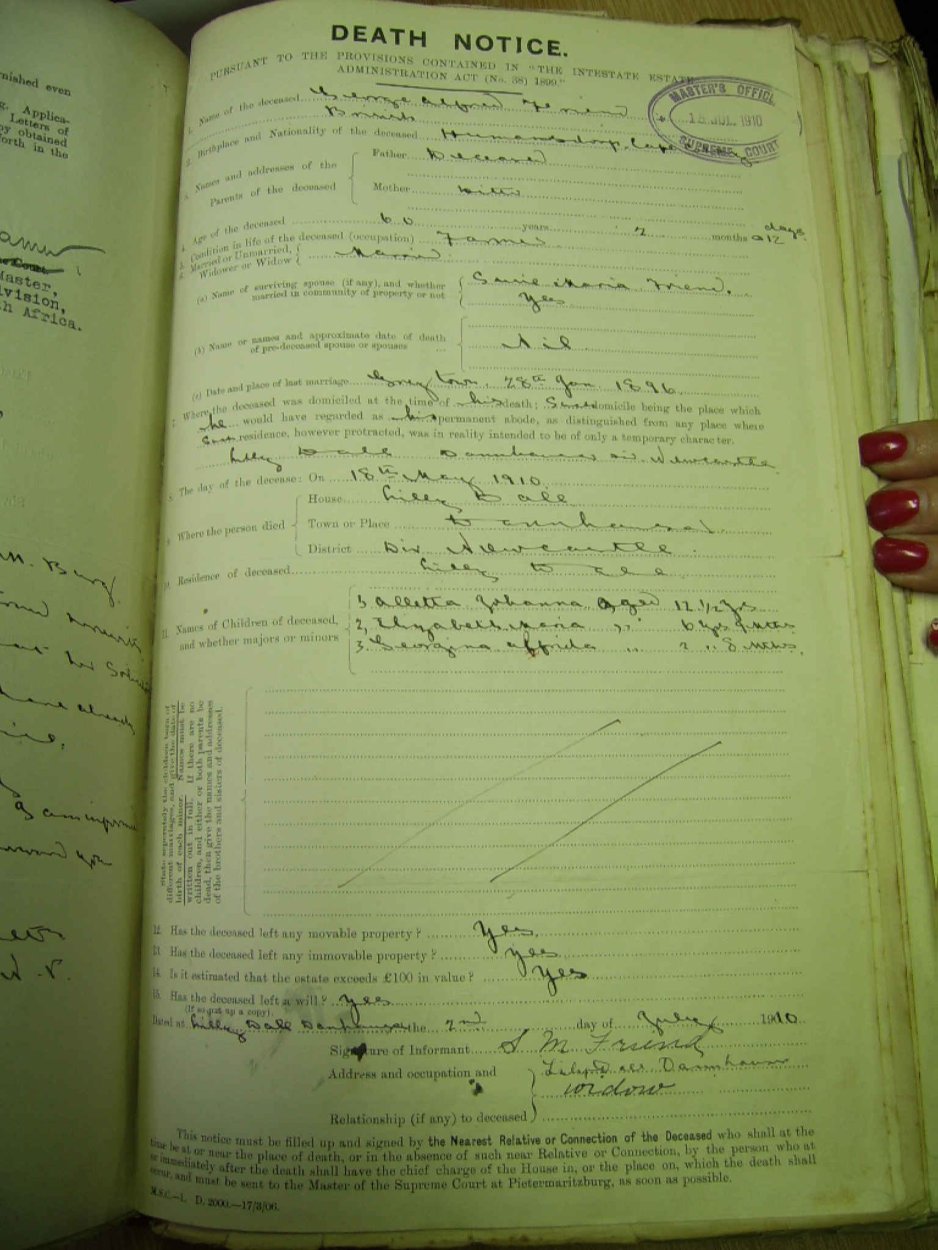 nished even
g. Applica-
Letters of
by obtained
orth in the
Master,
ivision,
h Africa.
DEATH NOTICE.
PURSUANT TO THE PROVISIONS CONTAINED IN "THE INTESTATE ESTATE
ADMINISTRATION ACT (No. 38) 1899."
MASTER'S OFFICE
18 JUL. 1910
SUPREME COURT
1. Name of the deceased George Alfred Friend
British
2. Birthplace and Nationality of the deceased Humansdorp, Cape
3. Names and addresses of the Parents of the deceased { Father Deceased
Mother Ditto
4. Age of the deceased 60 years 2 months 12 days
5. Condition in life of the deceased (occupation) Farmer
6. Married or Unmarried, Widower or Widow { Married
(a) Name of surviving spouse (if any), and whether married in community of property or not { Susie Maria Friend.
Yes
(b) Name or names and approximate date of death of pre-deceased spouse or spouses Nil
(c) Date and place of last marriage Greytown, 28th Jan 1896
7. Where the deceased was domiciled at the time of his death; domicile being the place which
he would have regarded as his permanent abode, as distinguished from any place where
residence, however protracted, was in reality intended to be of only a temporary character.
Lilly Dale Dannhauser Div. Newcastle
8. The day of the decease: On 18th May 1910
9. Where the person died { House Lilly Dale
Town or Place Dannhauser
District Div Newcastle
10. Residence of deceased Lilly Dale
11. Names of Children of deceased, and whether majors or minors
1, Alletta Johanna Aged 12 1/2 yrs
2, Elizabeth Maria ,, 6 yrs 9 Mths
3. Georgina Alfrida ,, 2 ,, 8 Mths.
State separately the children born of
different marriages, and give the date of
birth of each minor. Names must be
written out in full. If there are no
children, and either or both parents be
dead, then give the names and addresses
of the brothers and sisters of deceased.
12. Has the deceased left any movable property? Yes
13. Has the deceased left any immovable property? Yes
14. Is it estimated that the estate exceeds £100 in value? Yes
15. Has the deceased left a will? Yes
(If so put up a copy).
Dated at Lilly Dale Danhauser the 2nd day of July 1910
Signature of Informant S M Friend
Address and occupation and } Dannhauser
widow
Relationship (if any) to deceased
This notice must be filled up and signed by the Nearest Relative or Connection of the Deceased who shall at the
time be at or near the place of death, or in the absence of such near Relative or Connection, by the person who at
or immediately after the death shall have the chief charge of the House in, or the place on, which the death shall
occur, and must be sent to the Master of the Supreme Court at Pietermaritzburg, as soon as possible.
M.S.C.—1. D. 2000.—17/3/06.